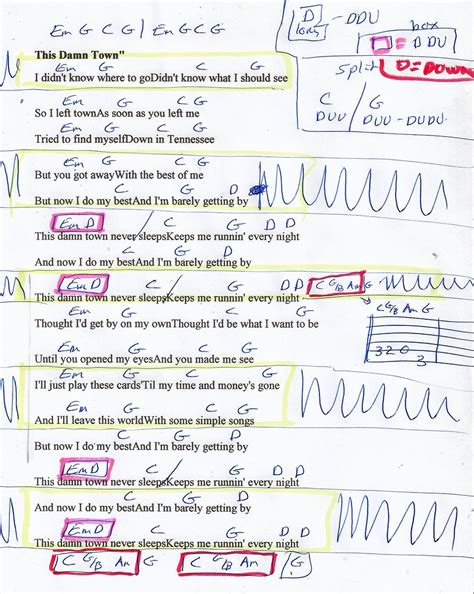 Em G C G / Em G C G
D - DDU
box
= D DU
split D = DOWN
C / G
DUU / DUU - DUDU
This Damn Town"
Em G C G
I didn't know where to goDidn't know what I should see
Em G C G
So I left townAs soon as you left me
Em G C G
Tried to find myselfDown in Tennessee
Em G C G
But you got awayWith the best of me
C G D
But now I do my bestAnd I'm barely getting by
Em D / C G D D
This damn town never sleepsKeeps me runnin' every night
C G D
And now I do my bestAnd I'm barely getting by
Em D C G D D C G/B Am G
This damn town never sleepsKeeps me runnin' every night
C G/B Am G
Em G C G
Thought I'd get by on my ownThought I'd be what I want to be
3 2 0 3
Em G C G
Until you opened my eyesAnd you made me see
Em G C G
I'll just play these cards'Til my time and money's gone
Em G C G
And I'll leave this worldWith some simple songs
C G D
But now I do my bestAnd I'm barely getting by
Em D C / G D D
This damn town never sleepsKeeps me runnin' every night
C G D
And now I do my bestAnd I'm barely getting by
Em D C G D D
This damn town never sleepsKeeps me runnin' every night
C G/B Am G C G/B Am / G